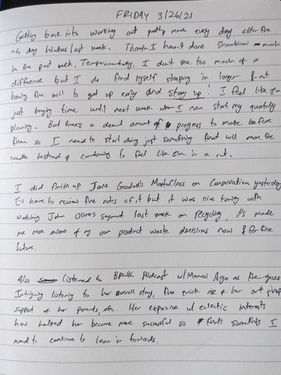 FRIDAY 3/26/21
Getting back into working out pretty much every day after five
day hiatus last week. Though I haven't done much
in the past week, Temperamentally, I don't see too much of a
difference but I do find myself sleeping in longer & not
having the will to get up early and stay up! I feel like I'm
just buying time until next week when I can start my quarterly
planning. But there's a decent amount of progress to make before
then so I need to start doing just something that will move the
needle instead of continuing to feel like I'm in a rut.
I did finish up Jane Goodall's MasterClass on Conservation yesterday.
I'll have to review the notes of it but it was nice timing with
watching John Oliver's segment last week on recycling, it's made
me more aware of my own product waste decisions now & for the
future.
Also listened to Podcast w/ as the guest.
Intriguing listening to her overall story, the quick rise of her art
support of her parents, etc. Her experience w/ eclectic interests
has helped her become more successful so that's something I
need to continue to lean in towards.